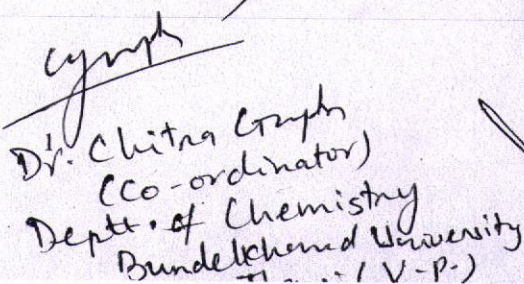 Dr. Chitra Gupta
(Co-ordinator)
Deptt. of Chemistry
Bundelkhand University
(U.P.)